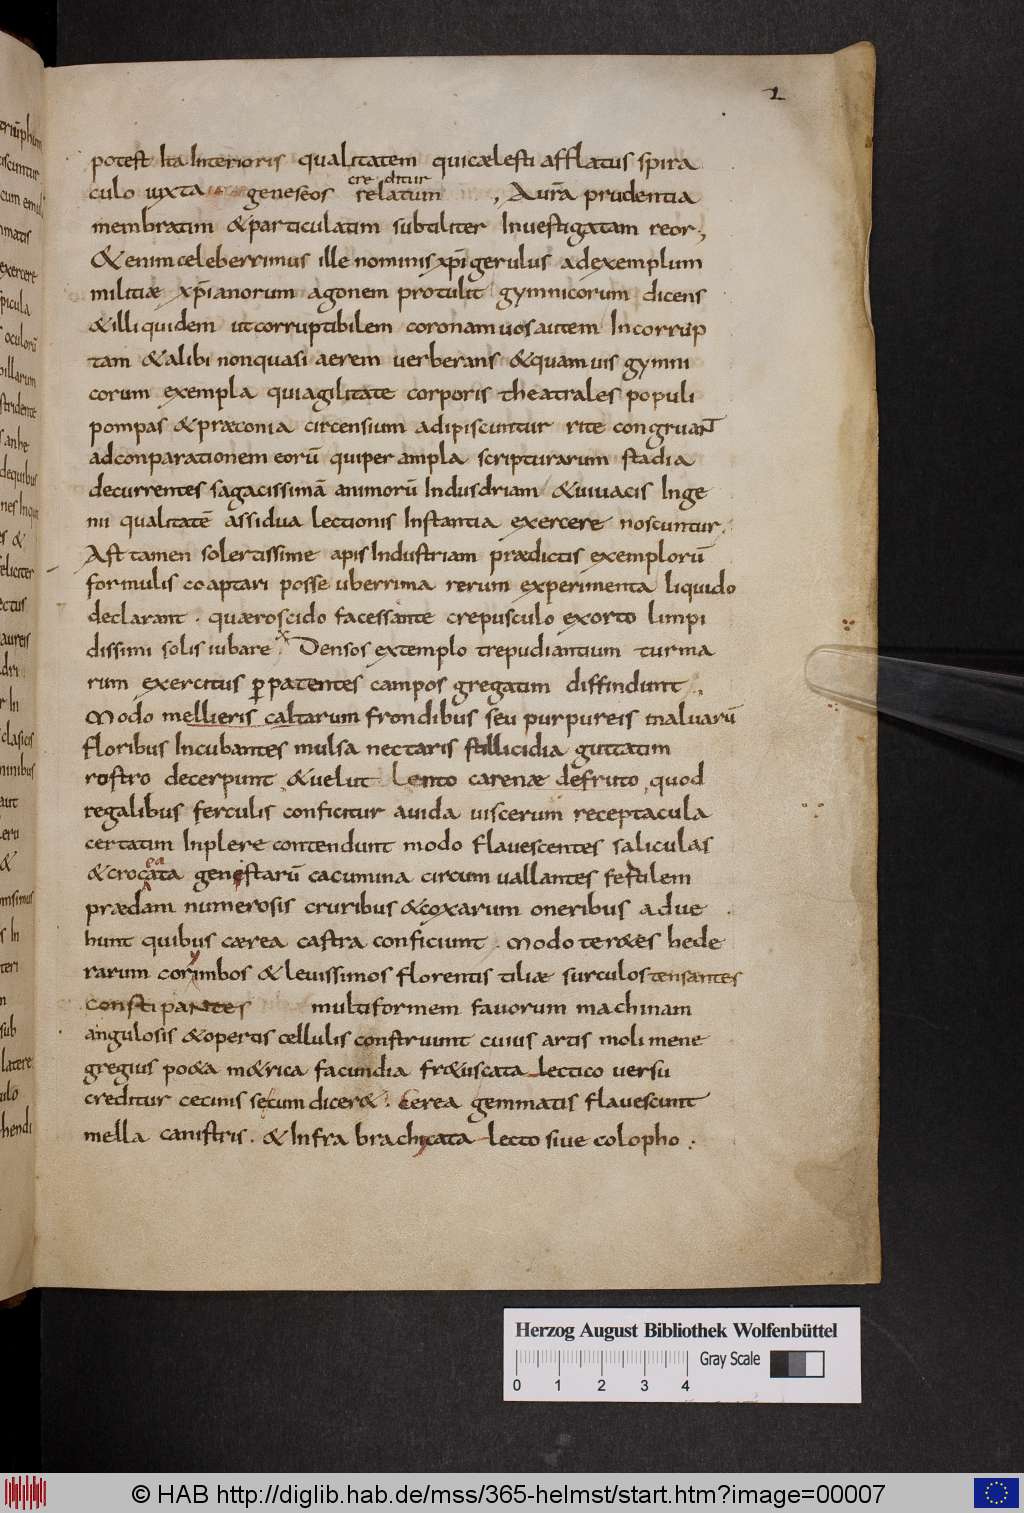 2
potest Ita Interioris qualitatem qui cælesti afflatus spira
culo iuxta geneseos relatum creditur, Aurā prudentia
membratim & particulatim subtiliter Inuestigatam reor;
& enim celeberrimus ille nominis xp̄i gerulus ad exemplum
militiæ xp̄ianorum agonem protulit gymnicorum dicens
& illi quidem ut corruptibilem coronam uos autem Incorrup
tam & alibi non quasi aerem uerberans & quamuis gymni
corum exempla qui agilitate corporis theatrales populi
pompas & præconia circensium adipiscuntur rite congruant
ad conparationem eorū qui per ampla scripturarum stadia
decurrentes sagacissimā animorū Indusdriam & uiuacis Inge
nii qualitatē assidua lectionis Instantia exercere noscuntur.
Ast tamen solertissime apis Industriam prædictis exemplorū
formulis coaptari posse uberrima rerum experimenta liquido
declarant. quæ roscido facessante crepusculo exorto limpi
dissimi solis iubare. Densos extemplo trepudiantium turma
rum exercitus ꝑ patentes campos gregatim diffindunt,
Modo mellieris caltarum frondibus seu purpureis maluarū
floribus Incubantes mulsa nectaris stillicidia guttatim
rostro decerpunt, & uelut Lento carenæ defruto, quod
regalibus ferculis conficitur auida uiscerum receptacula
certatim Inplere contendunt modo flauescentes saliculas
& crocata ea genestarū cacumina circum uallantes festilem
prædam numerosis cruribus & coxarum oneribus adue
hunt quibus cærea castra conficiunt. Modo ter&es hede
rarum corymbos & leuissimos florentis tiliæ surculos tensantes
constipantes multiformem fauorum machinam
angulosis & opertis cellulis construunt cuius artis molimene
gregius po&a m&rica facundia fr&us catalectico uersu
creditur cecinis secum dicer&. Cerea gemmatis flauescunt
mella canistris. & Infra brachycatalecto siue colopho.
Herzog August Bibliothek Wolfenbüttel
Gray Scale
0 1 2 3 4
© HAB http://diglib.hab.de/mss/365-helmst/start.htm?image=00007